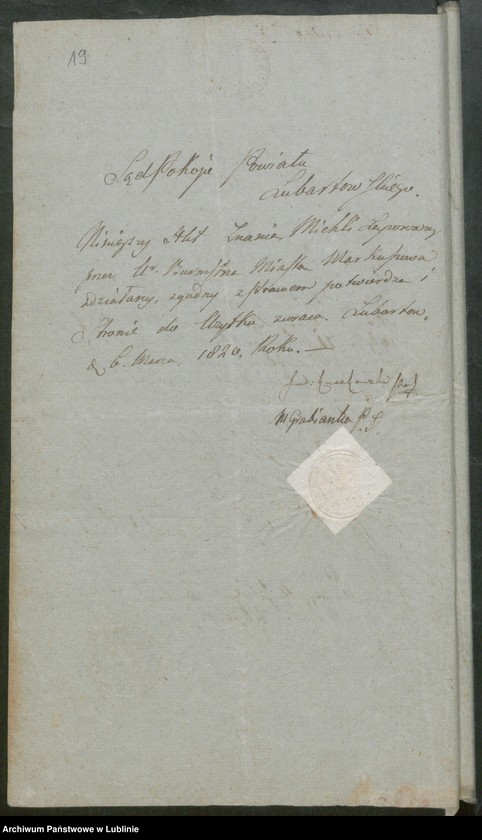 19
Sąd Pokoju Powiatu
Lubartowskiego.
Niniejszy Akt Znania Michli
przez Ur. Burmistrza Miasta Markuszowa
zdziałany, zgodny z prawem potwierdza i
Stronie do Użytku zwraca. Lubartow,
d. 6. Marca 1820. Roku. —
M Grabianka P. S.
Archiwum Państwowe w Lublinie